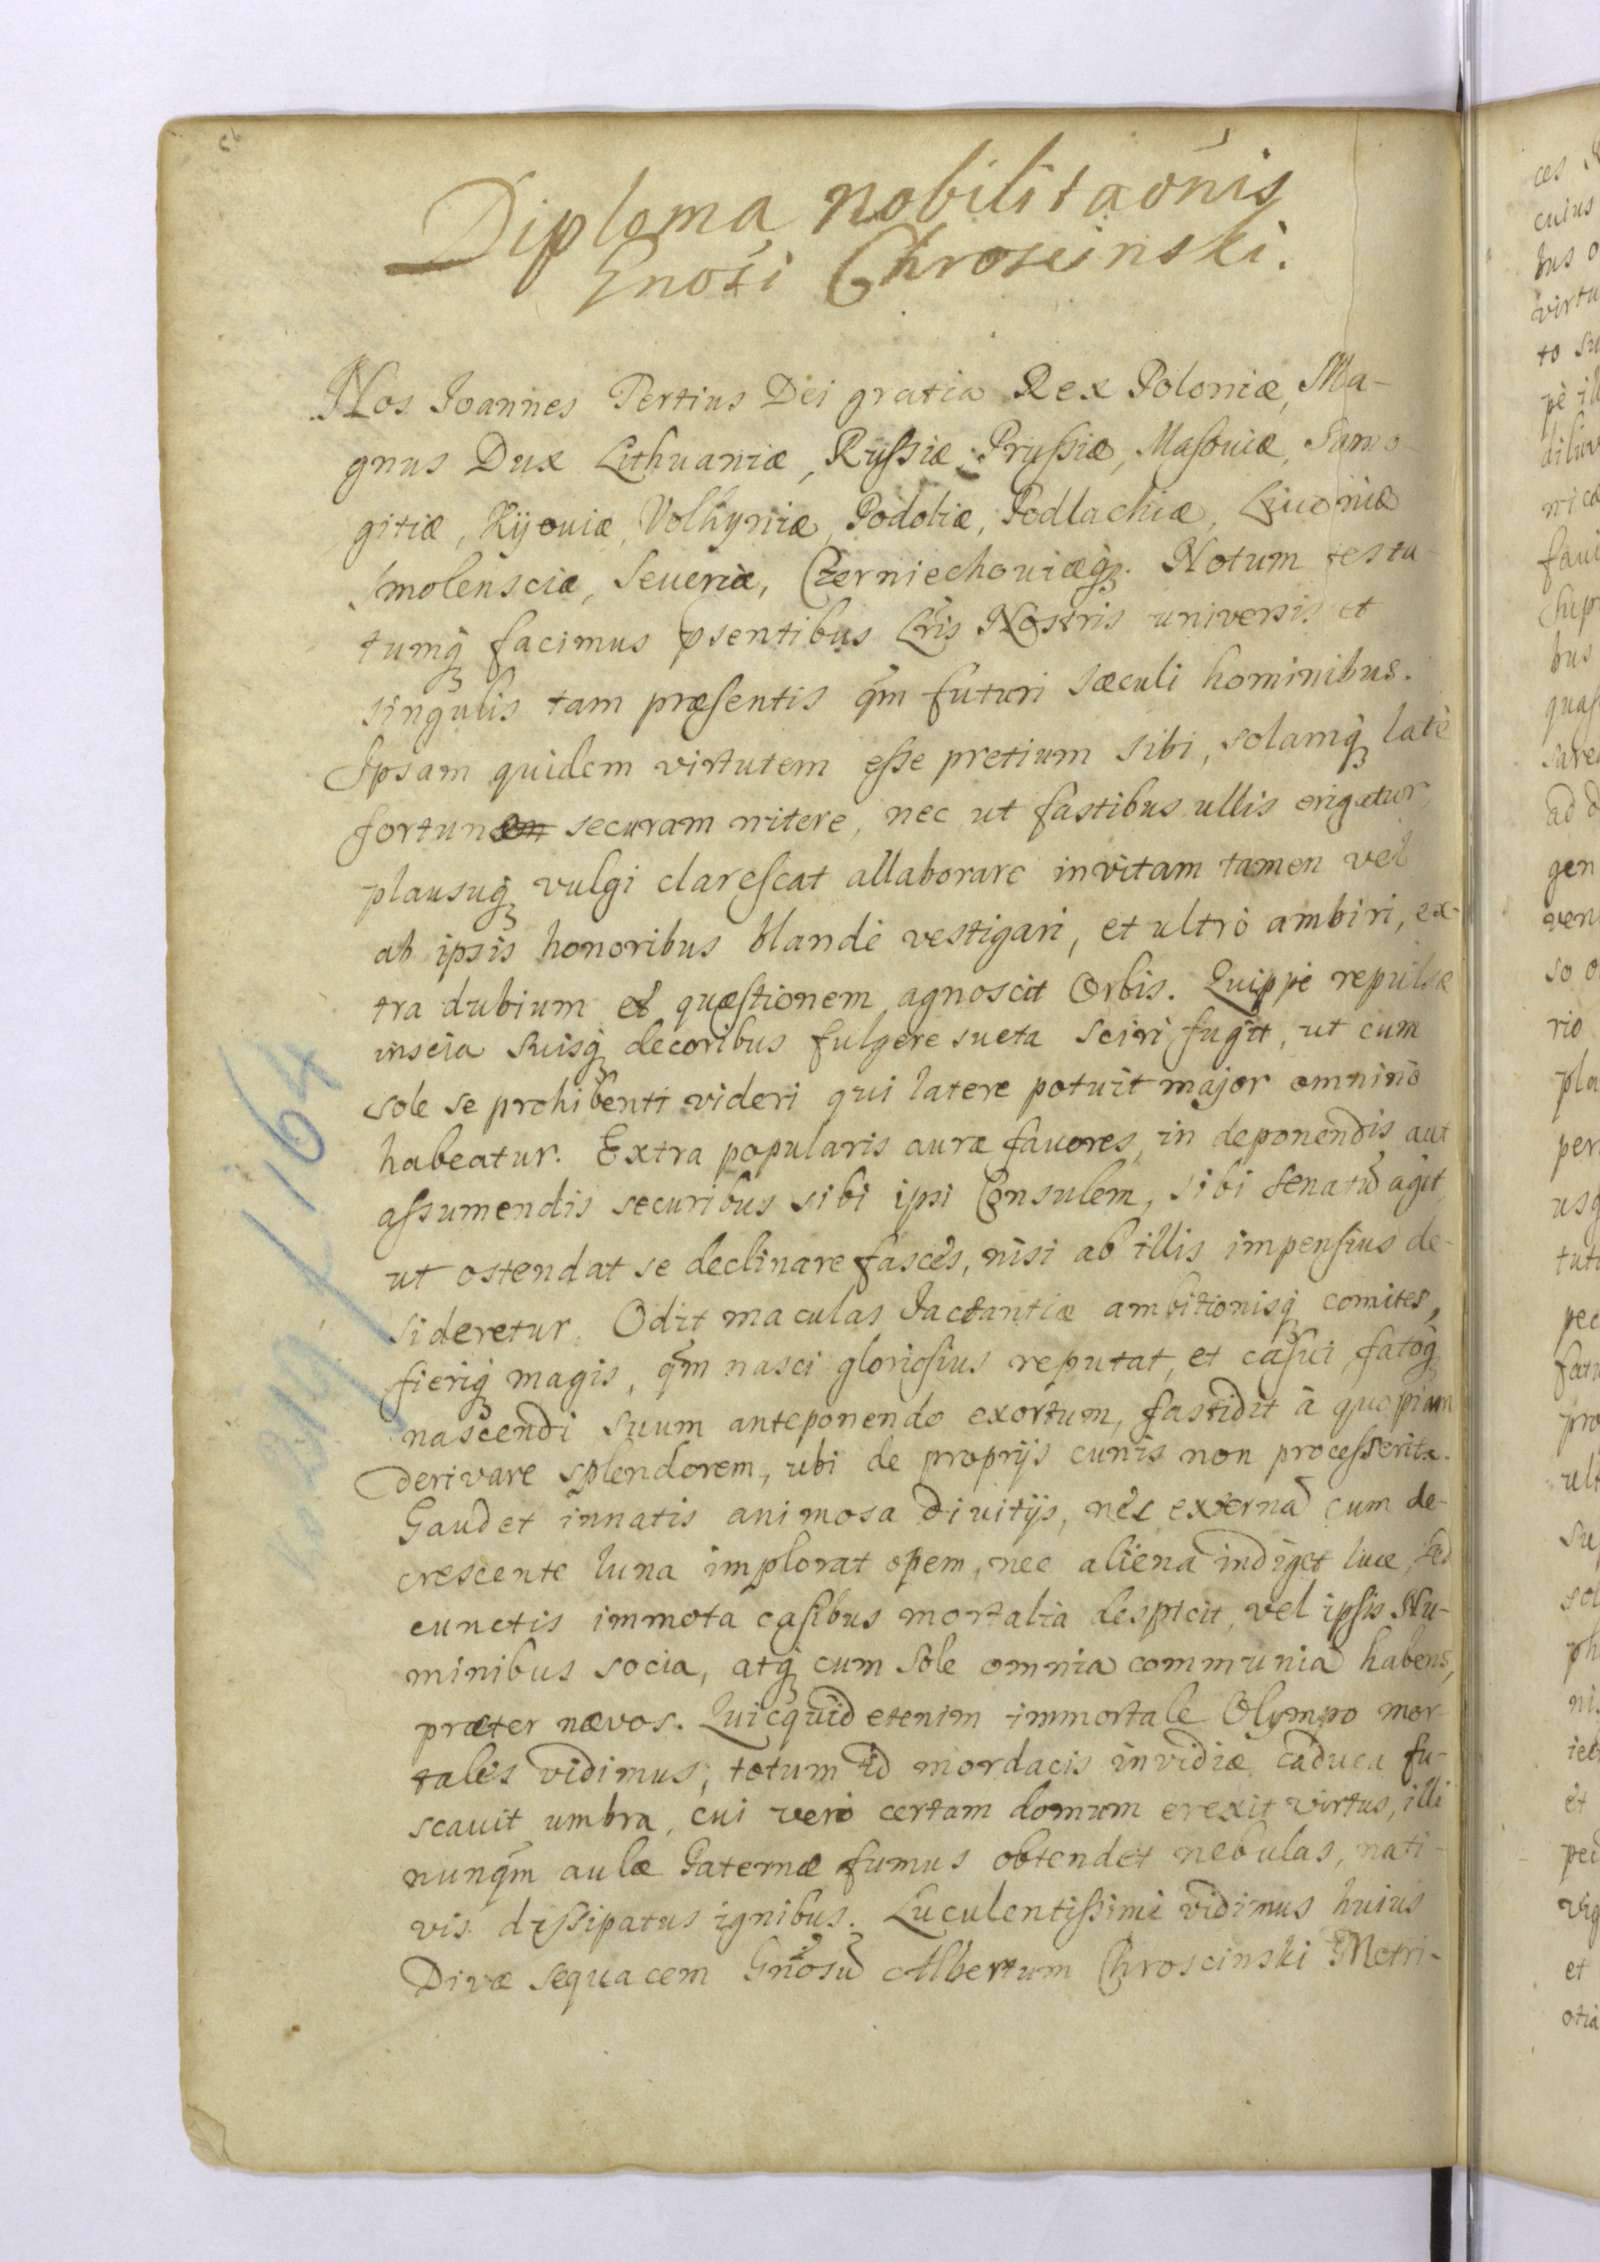 Diploma nobilitaõnis
Gnosi Chroscinski.
Nos Joannes Tertius Dei gratia Rex Poloniæ, Ma-
gnus Dux Lithvaniæ, Rußiæ, Prußiæ, Masouiæ, Samo-
gitiæ, Kijouiæ, Volhyniæ, Podoliæ, Podlachiæ, Liuoniæ
Smolensciæ, Seueriæ, Czerniechouiæq;. Notum testa-
tumq; facimus pṡentibus Lr̃is Nostris universis et
singulis tam præsentis qm̃ futuri sæculi hominibus.
Ipsam quidem virtutem eße pretium sibi, solamq; latè
fortunæ securam nitere, nec ut fastibus ullis erigatur,
plausuq; vulgi clarescat allaborare invitam tamen vel
ab ipsis honoribus blandè vestigari, et ultrò ambiri, ex-
tra dubium et quæstionem agnoscit Orbis. Quippè repulsæ
inscia suisq; decoribus fulgere sueta sciri fugit, ut cum
sole se prohibenti videri qui latere potuit major omninò
habeatur. Extra popularis auræ fauores, in deponendis aut
aßumendis securibus sibi ipsi Consulem, sibi senatũ agit
ut ostendat se declinare fasces, nisi ab illis impensius de-
sideretur. Odit maculas Jactantiæ ambitionisq; comites,
fieriq; magis, qm̃ nasci gloriosius reputat, et casui fatoq;
nascendi suum anteponendo exortum, fastidit à quopiam
derivare splendorem, ubi de proprijs cunis non proceßerit.
Gaudet innatis animosa divitijs, nec externã cum de-
crescente luna implorat opem, nec aliena indiget luce, sed
cunctis immota casibus mortalia despicit, vel ipsis Nu-
minibus socia, atq; cum Sole omnia communia habens,
præter nævos. Quicquid etenim immortale Olympo mor-
tales vidimus, totum id mordacis invidiæ caduca fu-
scauit umbra, cui verò certam domum erexit virtus, illi
nunqm̃ aulæ Paternæ fumus obtendet nebulas, nati-
vis dißipatus ignibus. Luculentißimè vidimus huius
Divæ sequacem Gnosũ Albertum Chroscinski Metri-